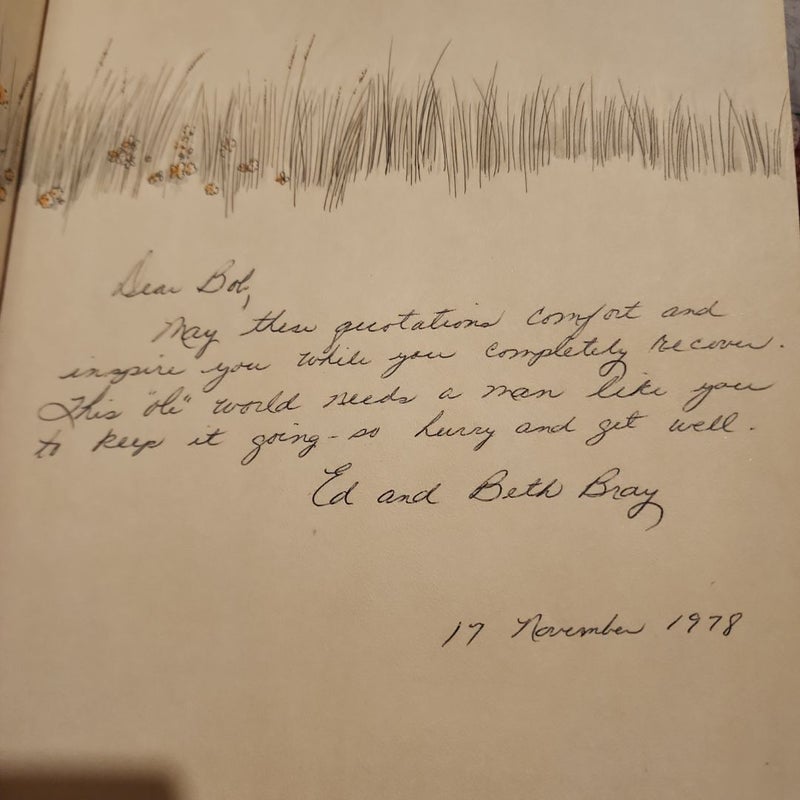 Dear Bob,
May these quotations comfort and
inspire you while you completely recover.
This "ole" world needs a man like you
to keep it going - so hurry and get well.
Ed and Beth Bray
17 November 1978